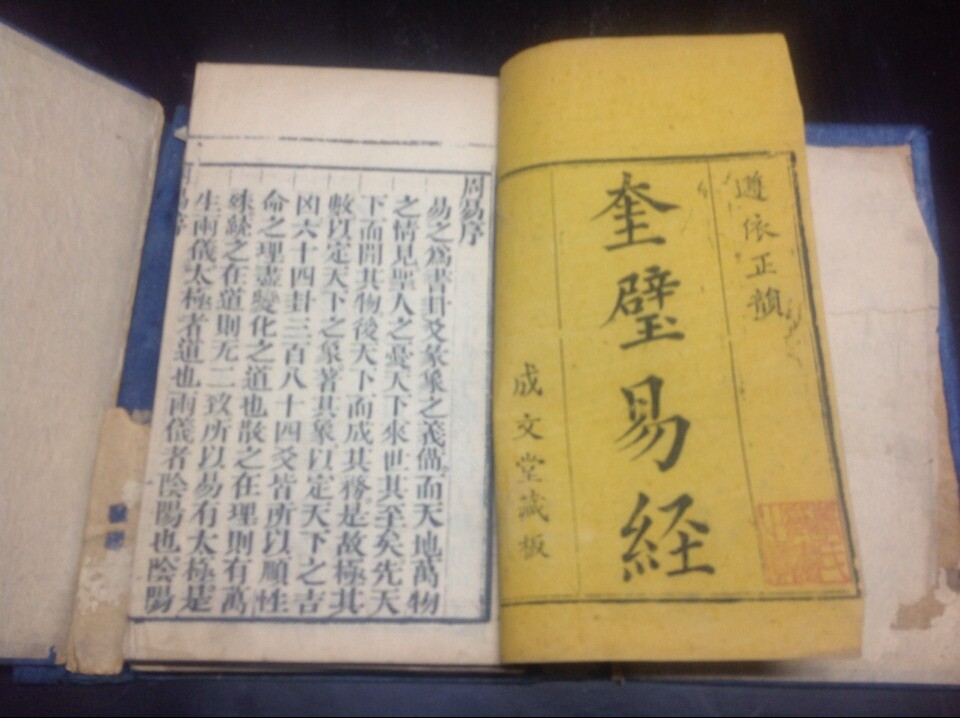 遵依正韻
奎璧易経
成文堂藏板
周易序
易之爲書卦爻彖象之義備而天地萬物
之情見聖人之憂天下來世其至矣先天
下而開其物後天下而成其務是故極其
數以定天下之象著其象以定天下之吉
凶六十四卦三百八十四爻皆所以順性
命之理盡變化之道也散之在理則有萬
殊統之在道則无二致所以易有太極是
生兩儀太極者道也兩儀者陰陽也陰陽